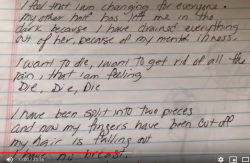 I feel that iam changing for everyone.
My other half has left me in the
dark because I have drained everything
out of her, because of my mental illness.
I want to die, I want to get rid of all the
pain, that iam feeling
Die, Die, Die
I have been split into two pieces
and now my fingers have been cut off
my hair is falling out